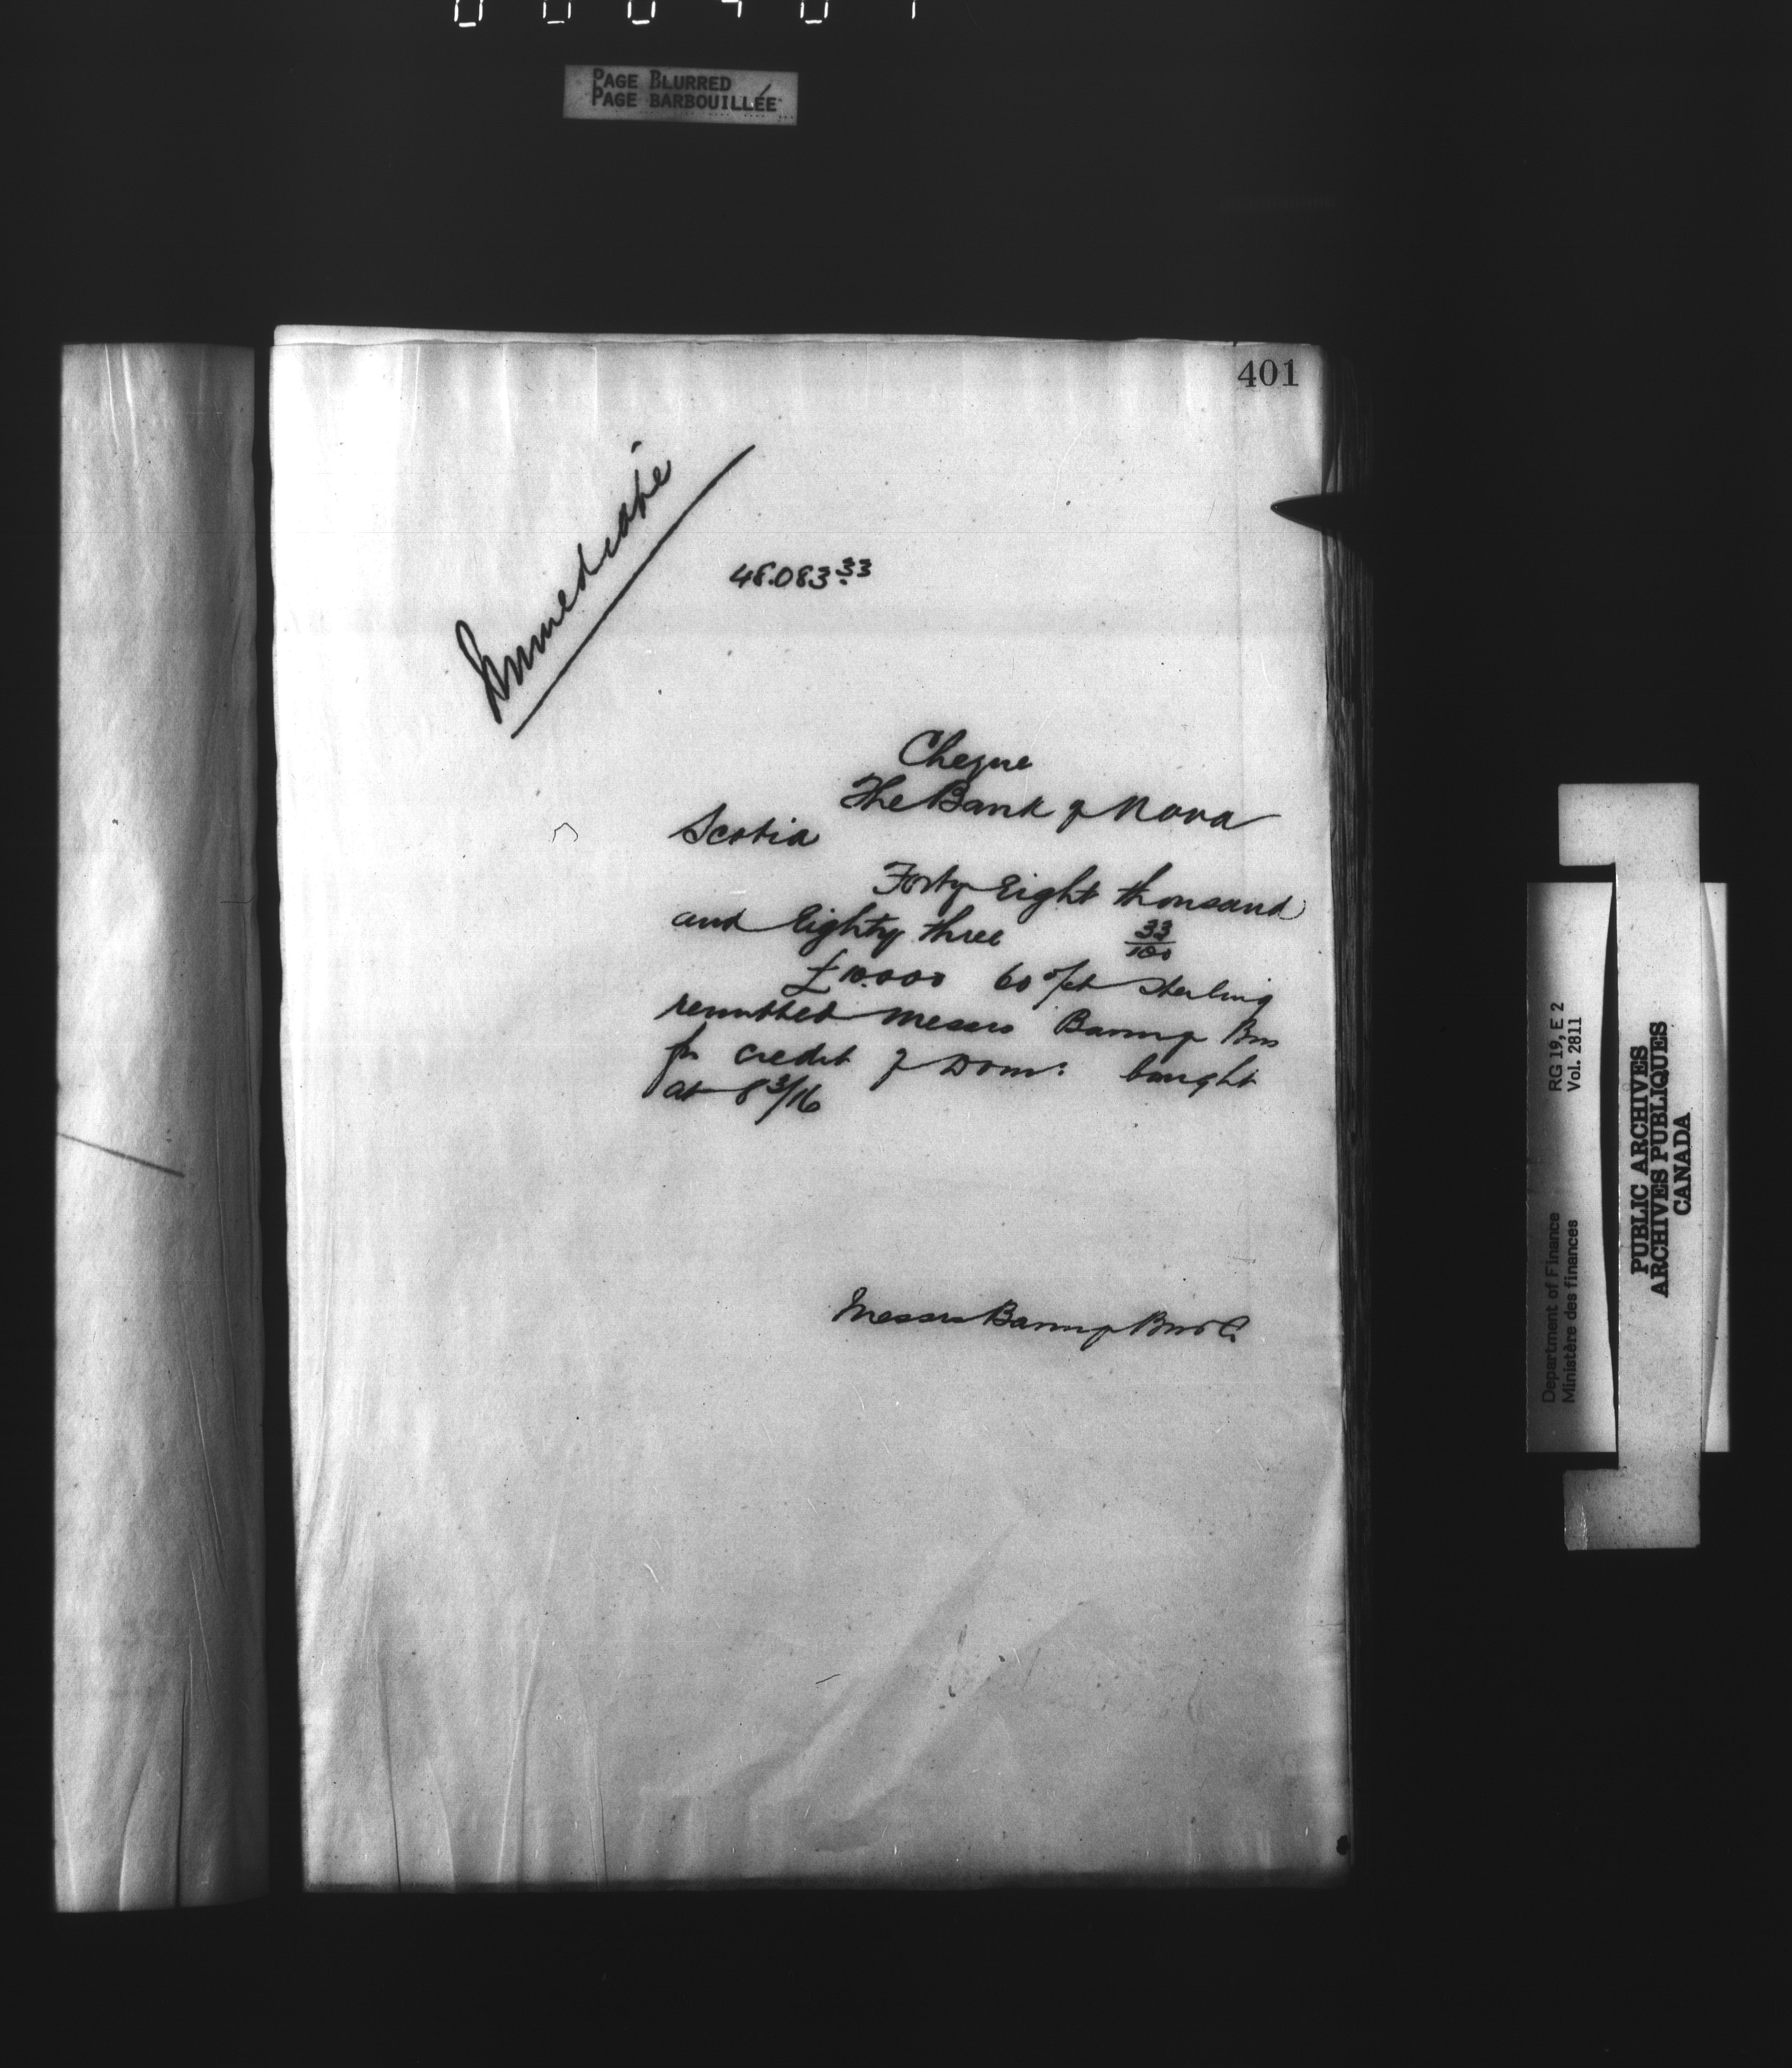 PAGE BLURRED
PAGE BARBOUILLÉE
401
Immediate
48.083.33
Cheque
The Bank of Nova
Scotia
Forty Eight thousand
and Eighty three 33/100
£10.000 60 d/st Sterling
remitted Messrs Baring Bros
for credit of Dom: bought
at 8 3/16
Messrs Baring Bros Co
Department of Finance RG 19, E 2
Ministère des finances Vol. 2811
PUBLIC ARCHIVES
ARCHIVES PUBLIQUES
CANADA